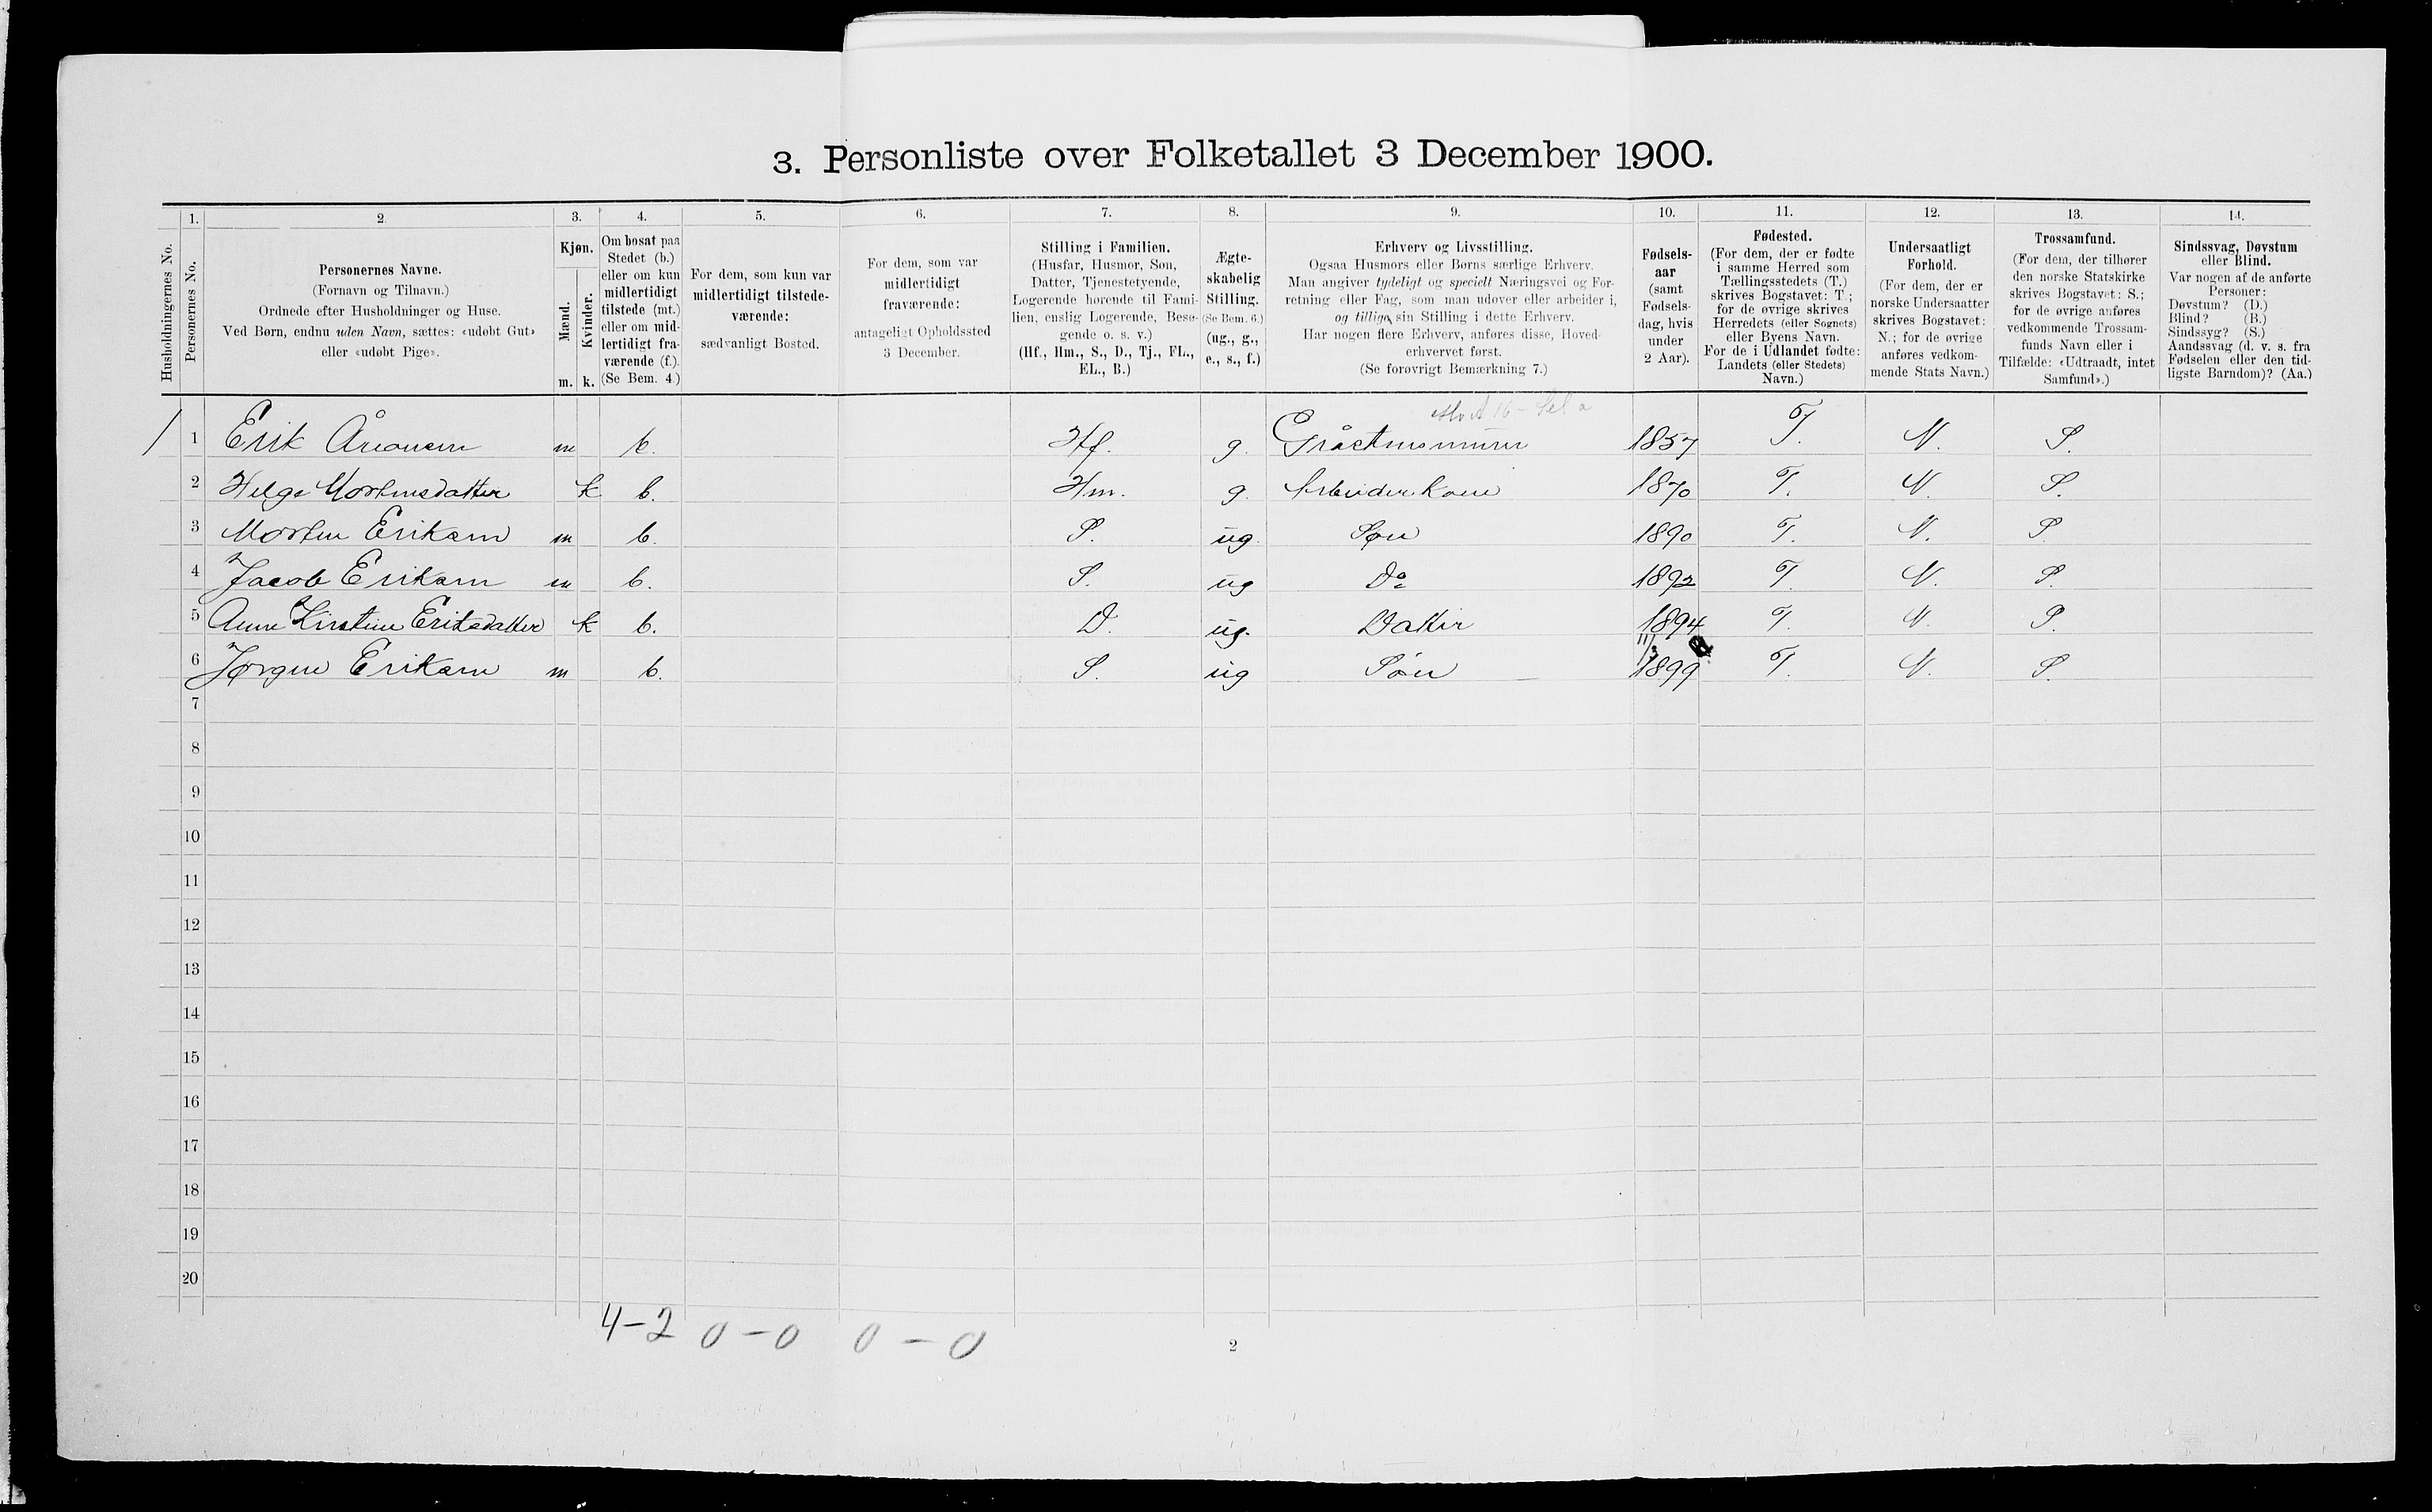 3. Personliste over Folketallet 3 December 1900.
1. 2. 3. 4. 5. 6. 7. 8. 9. 10. 11. 12. 13. 14.
Husholdningernes No.
Personernes No.
Personernes Navne.
(Fornavn og Tilnavn.)
Ordnede efter Husholdninger og Huse.
Ved Børn, endnu uden Navn, sættes: «udøbt Gut»
eller «udøbt Pige».
Kjøn.
Mænd.
Kvinder.
m. k.
Om bosat paa
Stedet (b.)
eller om kun
midlertidigt
tilstede (mt.)
eller om mid-
lertidigt fra-
værende (f.).
(Se Bem. 4.)
For dem, som kun var
midlertidigt tilstede-
værende:
sædvanligt Bosted.
For dem, som var
midlertidigt
fraværende:
antageligt Opholdssted
3 December.
Stilling i Familien.
(Husfar, Husmor, Søn,
Datter, Tjenestetyende,
Logerende hørende til Fami-
lien, enslig Logerende, Besø-
gende o. s. v.)
(Hf., Hm., S., D., Tj., FL.,
EL., B.)
Ægte-
skabelig
Stilling.
(Se Bem. 6.)
(ug., g.,
e., s., f.)
Erhverv og Livsstilling.
Ogsaa Husmors eller Børns særlige Erhverv.
Man angiver tydeligt og specielt Næringsvei og For-
retning eller Fag, som man udøver eller arbeider i,
og tillige sin Stilling i dette Erhverv.
Har nogen flere Erhverv, anføres disse, Hoved-
erhvervet først.
(Se forøvrigt Bemærkning 7.)
Fødsels-
aar
(samt
Fødsels-
dag, hvis
under
2 Aar).
Fødested.
(For dem, der er fødte
i samme Herred som
Tællingsstedets (T.)
skrives Bogstavet: T.;
for de øvrige skrives
Herredets (eller Sognets)
eller Byens Navn.
For de i Udlandet fødte:
Landets (eller Stedets)
Navn.)
Undersaatligt
Forhold.
(For dem, der er
norske Undersaatter
skrives Bogstavet:
N.; for de øvrige
anføres vedkom-
mende Stats Navn.)
Trossamfund.
(For dem, der tilhører
den norske Statskirke
skrives Bogstavet: S.;
for de øvrige anføres
vedkommende Trossam-
funds Navn eller i
Tilfælde: «Udtraadt, intet
Samfund».)
Sindssvag, Døvstum
eller Blind.
Var nogen af de anførte
Personer:
Døvstum? (D.)
Blind? (B.)
Sindssyg? (S.)
Aandssvag (d. v. s. fra
Fødselen eller den tid-
ligste Barndom)? (Aa.)
1 Erik m b. Hf. g. 1857 T. N. S.
2 Helge Mortensdatter k b. Hm. g. Arbeiderkone 1870 T. N. S.
3 Morten Eriksen m b. S. ug. Søn 1890 T. N. S.
4 Jacob Eriksen m b. S. ug Do 1892 T. N. S.
5 Anne Kirstine Eriksdatter k b. D. ug. Datter 1894 T. N. S.
6 Jørgen Eriksen m b. S. ug Søn 11/3 1899 T. N. S.
7
8
9
10
11
12
13
14
15
16
17
18
19
20
4-2 0-0 0-0
2